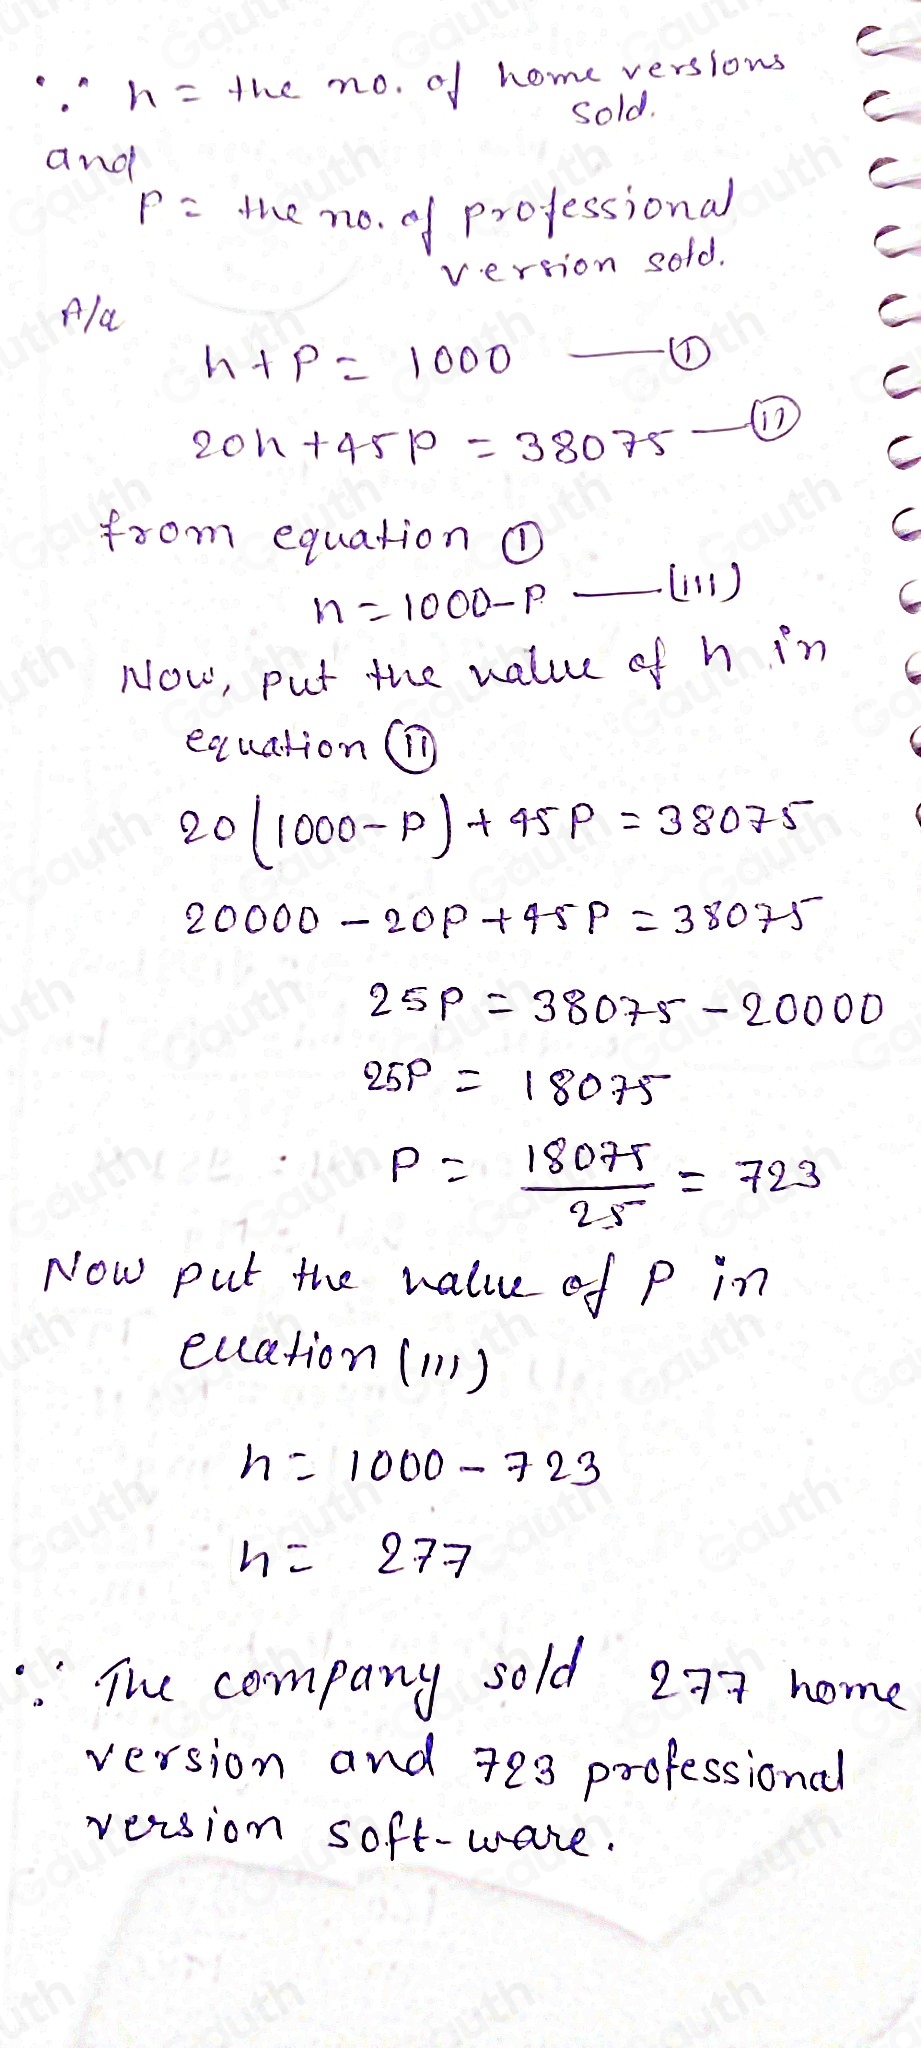 ∵ h = the no. of home versions
sold.
and
P = the no. of professional
version sold.
A/q
h + P = 1000 —— ①
20h + 45P = 38075 — ⑪
from equation ①
h = 1000 - P —— (111)
Now, put the value of h in
equation ⑪
20(1000 - P) + 45P = 38075
20000 - 20P + 45P = 38075
25P = 38075 - 20000
25P = 18075
P = 18075/25 = 723
Now put the value of P in
euation (111)
h = 1000 - 723
h = 277
∵ The company sold 277 home
version and 723 professional
version soft-ware.